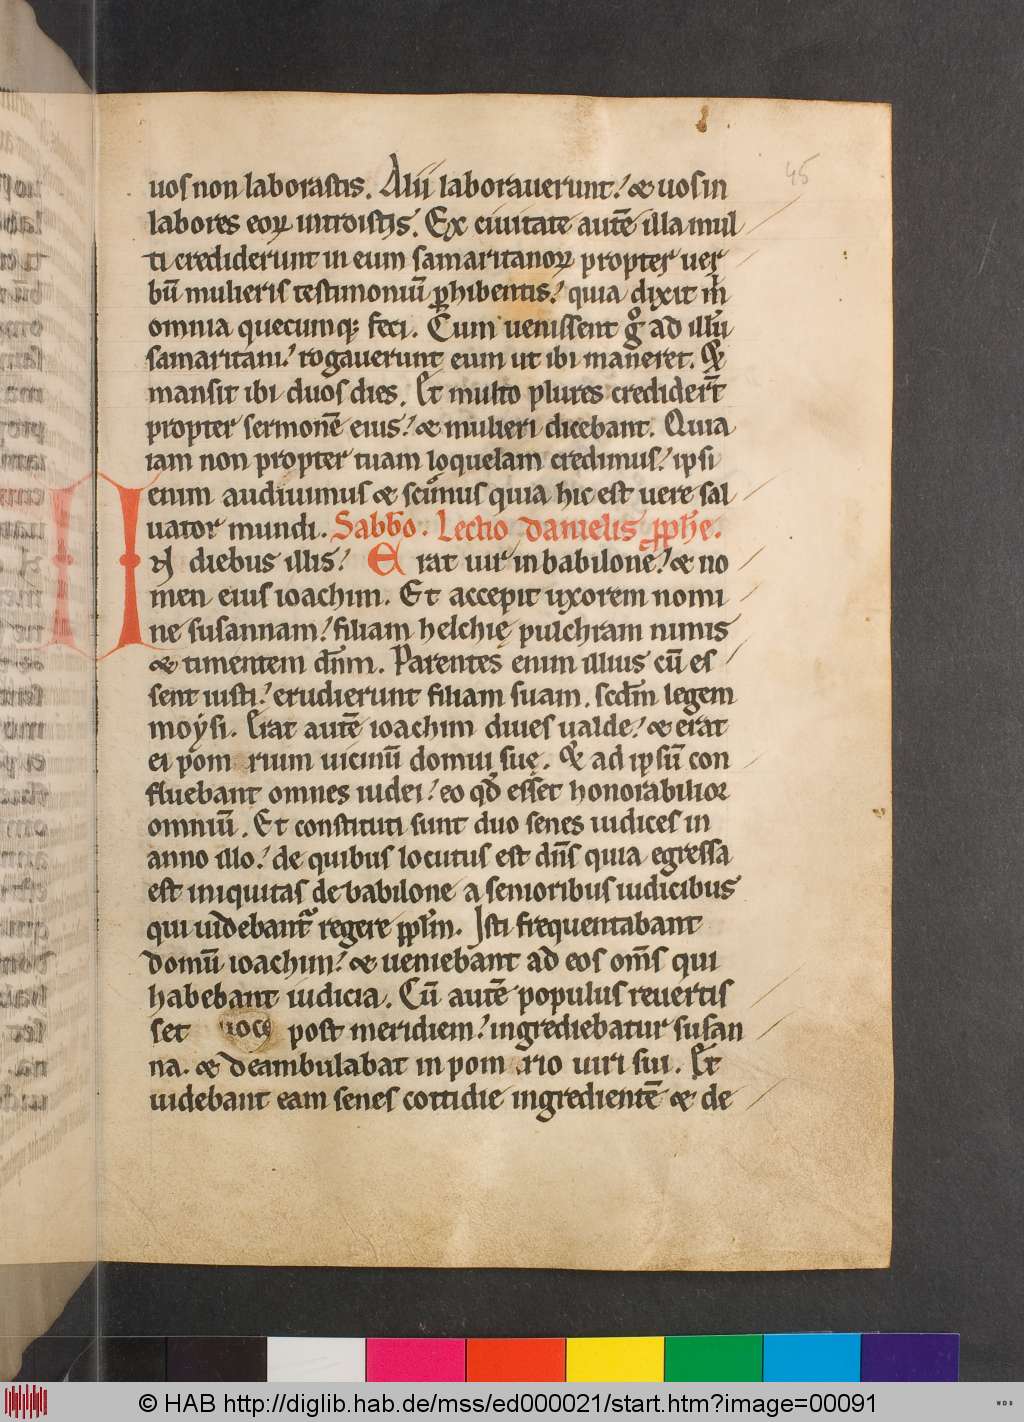 45
uos non laborastis. Alii laborauerunt! & uos in
labores eoꝝ introistis. Ex ciuitate autē illa mul
ti crediderunt in eum samaritanoꝝ propter uer
bū mulieris testimoniū ꝑhibentis! quia dixit m̄
omnia quecumqꝫ feci. Cum uenissent gͦ ad illū
samaritani! rogauerunt eum ut ibi maneret. &
mansit ibi duos dies. Et multo plures credider̄t
propter sermonē eius! & mulieri dicebant. Quia
iam non propter tuam loquelam credimus! ipsi
enim audiuimus & scim̄us quia hic est uere sal
uator mundi. Sabb̄o. Lectio danielis ꝓph̄e.
IN diebus illis! Erat uir in babilone! & no
men eius ioachim. Et accepit uxorem nomi
ne susannam! filiam helchię pulchram nimis
& timentem dn̄m. Parentes enim illius cū es
sent iusti! erudierunt filiam suam. scdm̄ legem
moysi. Erat autē ioachim diues ualde! & erat
ei pom rium uicinū domui suę. & ad ipsū con
fluebant omnes iudei! eo qd̄ esset honorabilior
omniū. Et constituti sunt duo senes iudices in
anno illo! de quibus locutus est dn̄s quia egressa
est iniquitas de babilone a senioribus iudicibus
qui uidebant̄ regere ppl̄m. Isti frequentabant
domū ioachim! & ueniebant ad eos om̄s qui
habebant iudicia. Cū autē populus reuertis
set post meridiem! ingrediebatur susan
na. & deambulabat in pom rio uiri sui. Et
uidebant eam senes cottidie ingredientē & de
© HAB http://diglib.hab.de/mss/ed000021/start.htm?image=00091